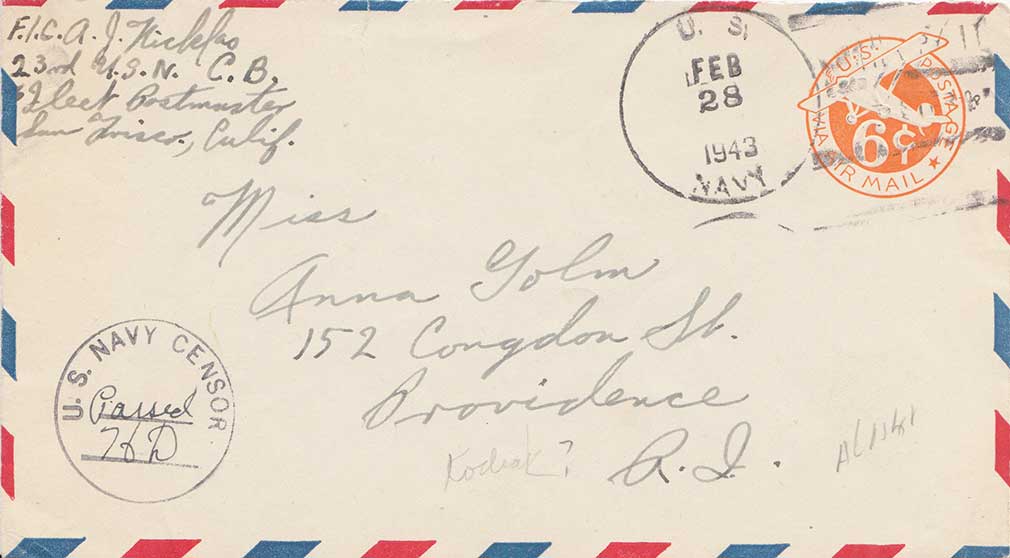 F.1.C. A. J. Nicklas
23rd U.S.N. C.B.
Fleet Postmaster
San Frisco., Calif.
U. S.
FEB
28
1943
NAVY
U.S. POSTAGE
6¢
VIA AIR MAIL
Miss
Anna Golm
152 Congdon St.
Providence
R.I.
U.S. NAVY CENSOR
Passed
Kodiak?